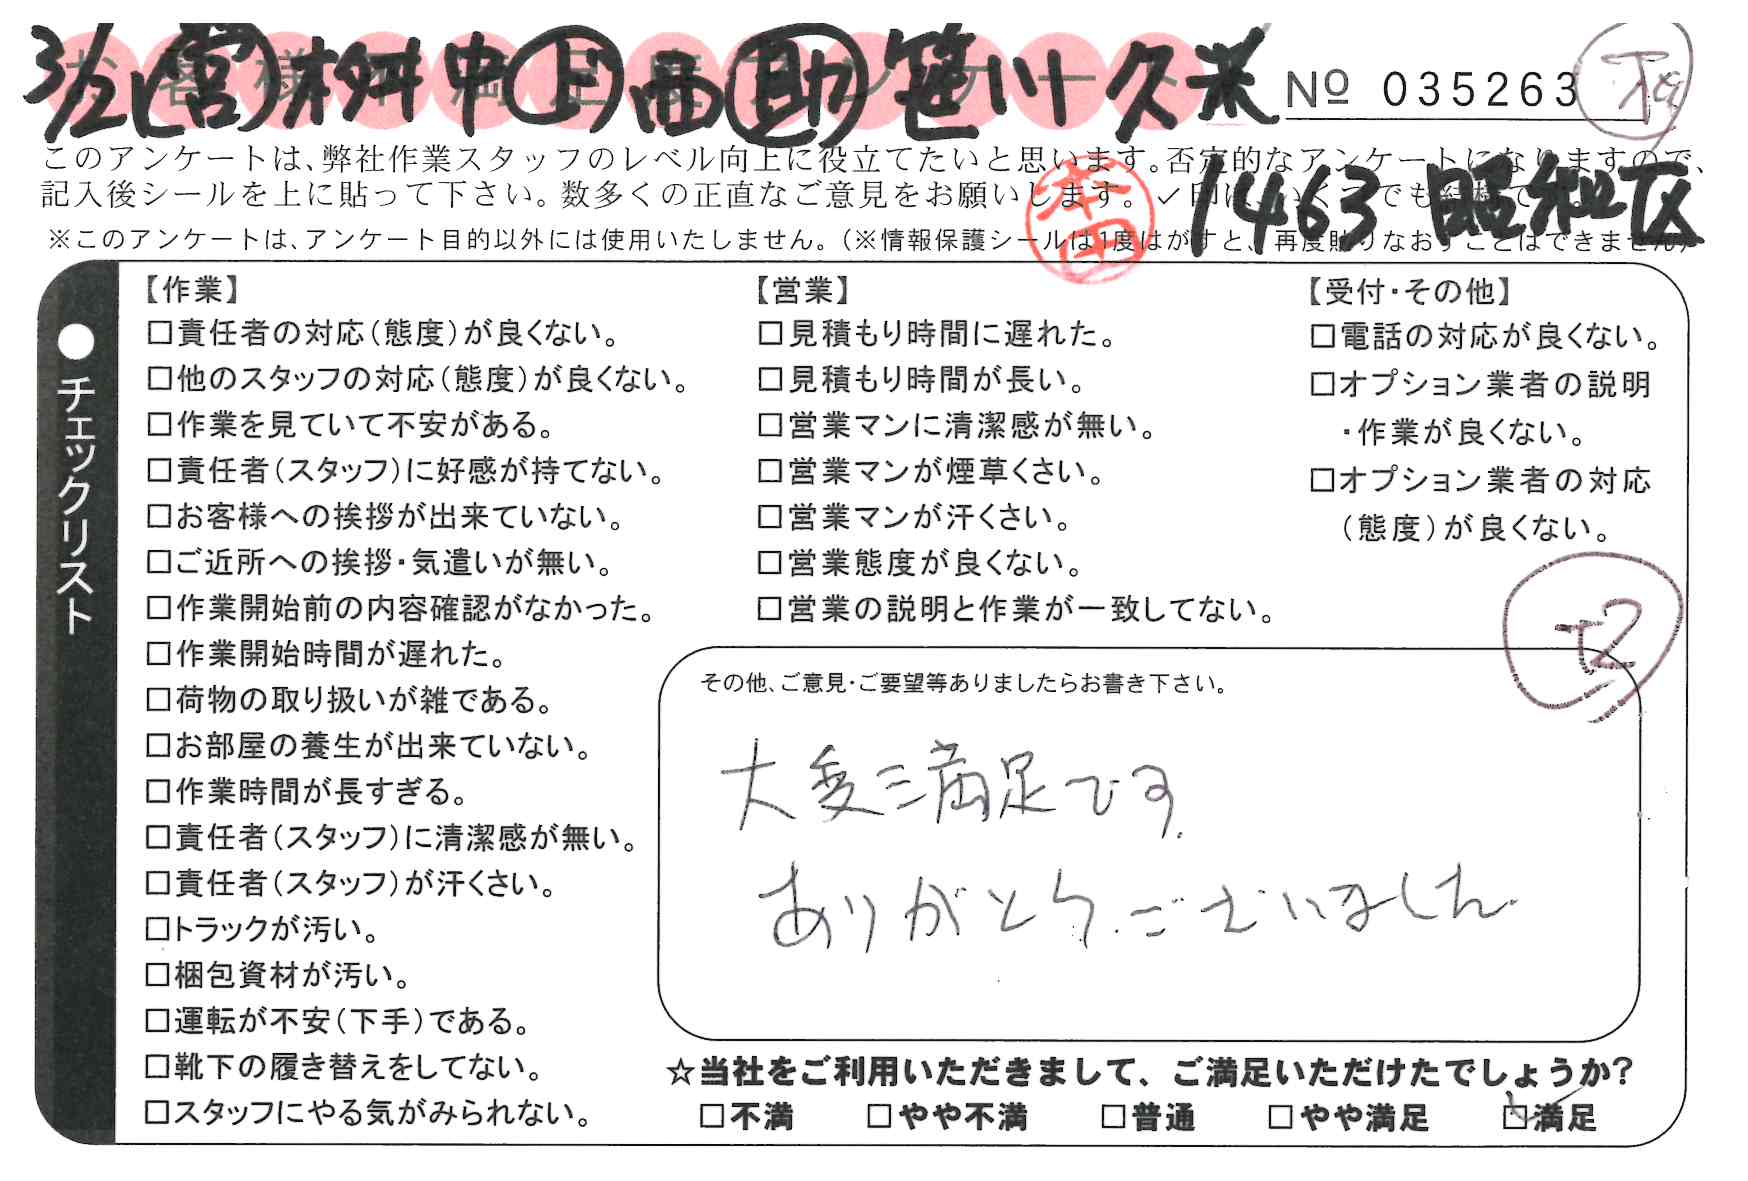 お客様不満足度アンケート
3/2 宮 桝 中 上 西 助 笹川 久米
№ 035263
このアンケートは、弊社作業スタッフのレベル向上に役立てたいと思います。否定的なアンケートになりますので、
記入後シールを上に貼って下さい。数多くの正直なご意見をお願いします。✓印は、いくつでも結構です。
本田
1463 昭和区
※このアンケートは、アンケート目的以外には使用いたしません。(※情報保護シールは1度はがすと、再度貼りなおすことはできません)
●チェックリスト
【作業】
□責任者の対応(態度)が良くない。
□他のスタッフの対応(態度)が良くない。
□作業を見ていて不安がある。
□責任者(スタッフ)に好感が持てない。
□お客様への挨拶が出来ていない。
□ご近所への挨拶・気遣いが無い。
□作業開始前の内容確認がなかった。
□作業開始時間が遅れた。
□荷物の取り扱いが雑である。
□お部屋の養生が出来ていない。
□作業時間が長すぎる。
□責任者(スタッフ)に清潔感が無い。
□責任者(スタッフ)が汗くさい。
□トラックが汚い。
□梱包資材が汚い。
□運転が不安(下手)である。
□靴下の履き替えをしてない。
□スタッフにやる気がみられない。
【営業】
□見積もり時間に遅れた。
□見積もり時間が長い。
□営業マンに清潔感が無い。
□営業マンが煙草くさい。
□営業マンが汗くさい。
□営業態度が良くない。
□営業の説明と作業が一致してない。
【受付・その他】
□電話の対応が良くない。
□オプション業者の説明
・作業が良くない。
□オプション業者の対応
(態度)が良くない。
その他、ご意見・ご要望等ありましたらお書き下さい。
大変満足です.
ありがとうございました
☆当社をご利用いただきまして、ご満足いただけたでしょうか?
□不満 □やや不満 □普通 □やや満足 ☑満足